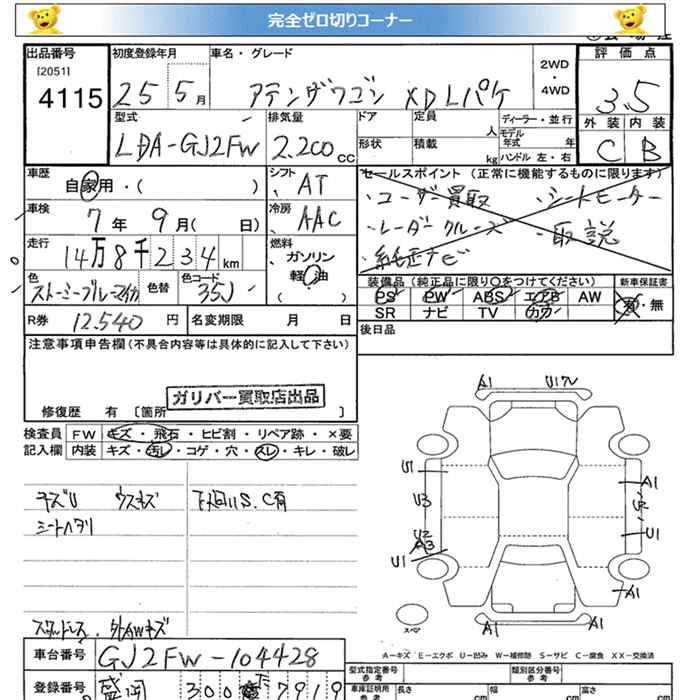 完全ゼロ切りコーナー
出品番号 初度登録年月 車名・グレード 評価点
[2051] 2WD・4WD
4115 25 5月 アテンザワゴン XD Lパケ 3.5
型式 排気量 ドア 定員 人 ディーラー・並行 外装 内装
モデル年式 年
LDA-GJ2FW 2.200cc 形状 積載 kg ハンドル 左・右 C B
車歴 シフト セールスポイント (正常に機能するものに限ります)
自家用・( ) AT ・ユーザー買取 ・シートヒーター
車検 冷房 ・レーダークルーズ ・取説
7年 9月( 日) AAC ・純正ナビ
走行 燃料
14万8千234km ガソリン
軽油
( )
色 色替 色コード 装備品 (純正品に限り○をつけてください) 新車保証書
ストーミーブルーマイカ 35J PS PW ABS エアB AW 有・無
SR ナビ TV カワ
R券 12.540円 名変期限 月 日 後日品
注意事項申告欄 (不具合内容等は具体的に記入して下さい)
ガリバー買取店出品
修復歴 有 [箇所 ]
検査員 FW キズ・飛石・ヒビ割・リペア跡・×要
記入欄 内装 キズ・汚レ・コゲ・穴・スレ・キレ・破レ
キズU ウスキズ 下廻りS.C有
シートヘタリ
A1 U1
U1 A1
U3
U2 U1
A3
U1 A1
スペア A1 A1
スタッドレス. 社外AWキズ
A−キズ E−エクボ U−凹み W−補修跡 S−サビ C−腐食 XX−交換済
車台番号 GJ2FW-104428
型式指定番号 参考 類別区分番号 参考
登録番号 盛岡 300 7919
車庫証明用 参考 長さ cm 幅 cm 高さ cm